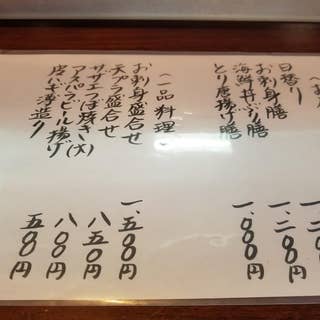 日替り
お刺身膳
海鮮丼ぶり膳
とり唐揚げ膳
一、二〇〇円
一、〇〇〇円
〈一品料理〉
お刺身盛合せ
天プラ盛合せ
サザエつぼ焼き(大)
アスパラビール揚げ
皮はぎ薄造り
一、五〇〇円
八五〇円
八〇〇円
五〇〇円